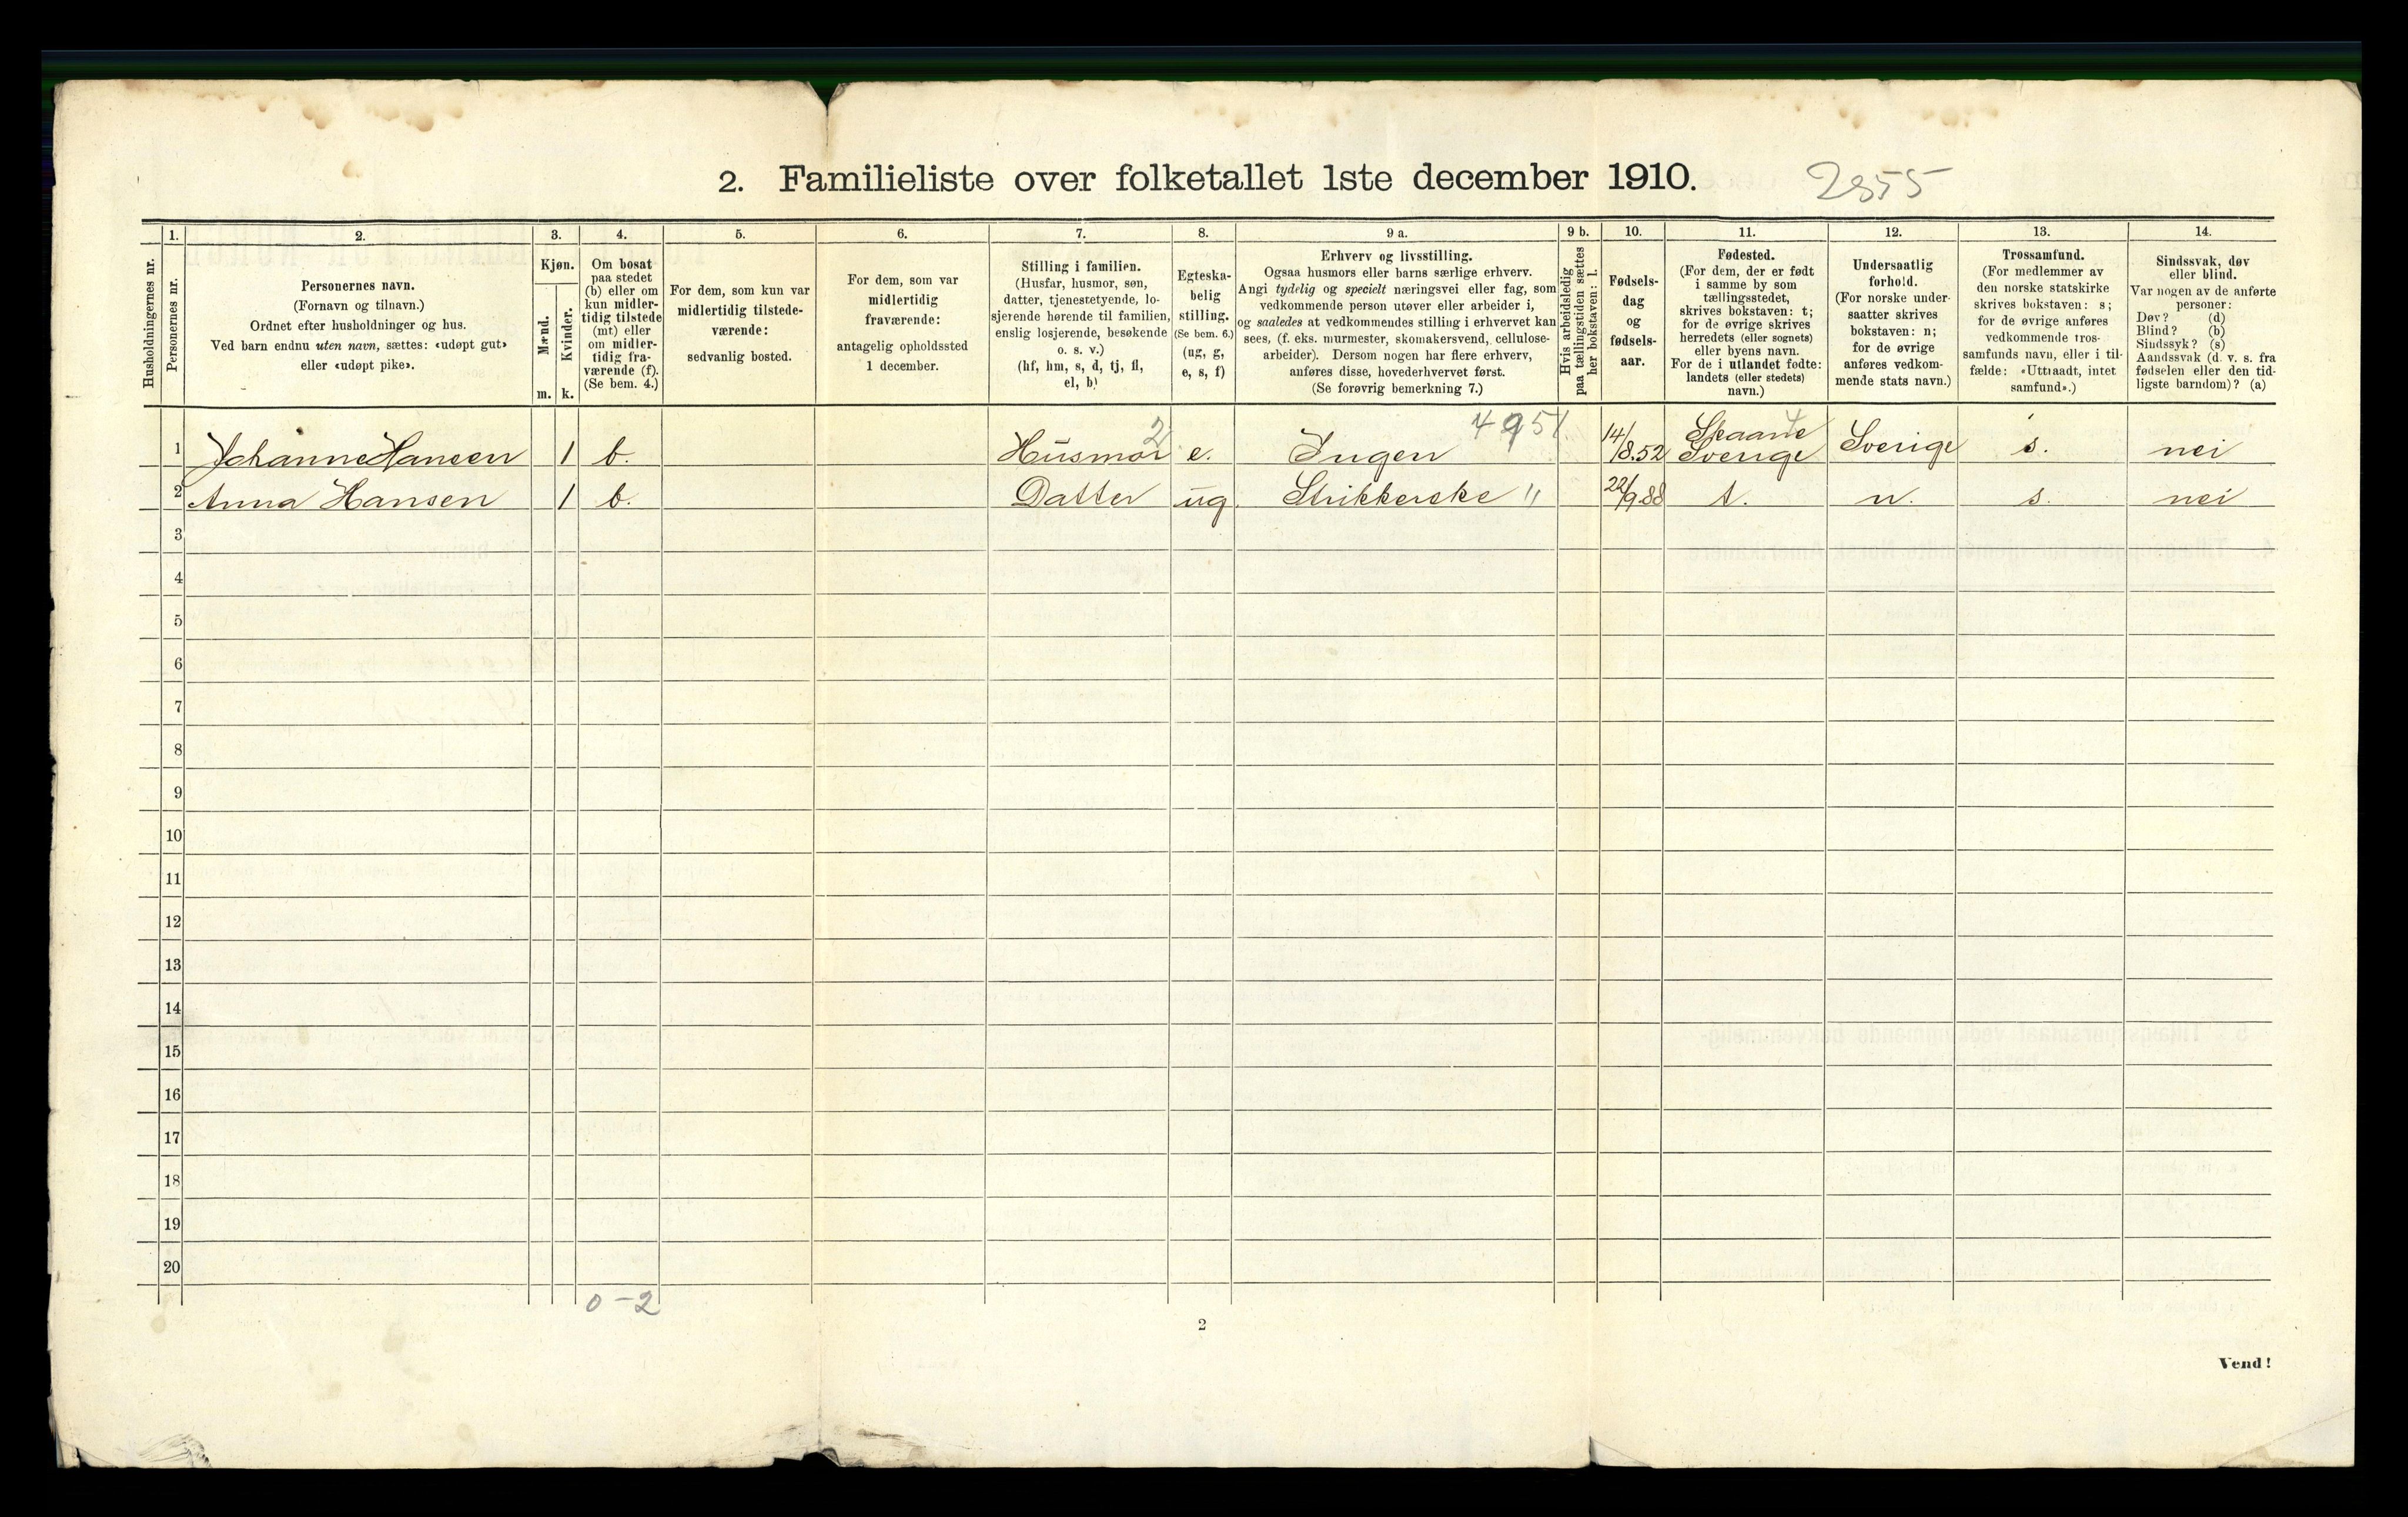 2. Familieliste over folketallet 1ste december 1910. 2855
Husholdningernes nr.
1.
Personernes nr.
2.
Personernes navn.
(Fornavn og tilnavn.)
Ordnet efter husholdninger og hus.
Ved barn endnu uten navn, sættes: «udøpt gut»
eller «udøpt pike».
3.
Kjøn.
Mænd.
Kvinder.
m. k.
4.
Om bosat
paa stedet
(b) eller om
kun midler-
tidig tilstede
(mt) eller
om midler-
tidig fra-
værende (f).
(Se bem. 4.)
5.
For dem, som kun var
midlertidig tilstede-
værende:
sedvanlig bosted.
6.
For dem, som var
midlertidig
fraværende:
antagelig opholdssted
1 december.
7.
Stilling i familien.
(Husfar, husmor, søn,
datter, tjenestetyende, lo-
sjerende hørende til familien,
enslig losjerende, besøkende
o. s. v.)
(hf, hm, s, d, tj, fl,
el, b)
8.
Egteska-
belig
stilling.
(Se bem. 6.)
(ug, g,
e, s, f)
9 a.
Erhverv og livsstilling.
Ogsaa husmors eller barns særlige erhverv.
Angi tydelig og specielt næringsvei eller fag, som
vedkommende person utøver eller arbeider i,
og saaledes at vedkommendes stilling i erhvervet kan
sees, (f. eks. murmester, skomakersvend, cellulose-
arbeider). Dersom nogen har flere erhverv,
anføres disse, hovederhvervet først.
(Se forøvrig bemerkning 7.)
9 b.
Hvis arbeidsledig
paa tællingstiden sættes
her bokstaven: l.
10.
Fødsels-
dag
og
fødsels-
aar.
11.
Fødested.
(For dem, der er født
i samme by som
tællingsstedet,
skrives bokstaven: t;
for de øvrige skrives
herredets (eller sognets)
eller byens navn.
For de i utlandet fødte:
landets (eller stedets)
navn.)
12.
Undersaatlig
forhold.
(For norske under-
saatter skrives
bokstaven: n;
for de øvrige
anføres vedkom-
mende stats navn.)
13.
Trossamfund.
(For medlemmer av
den norske statskirke
skrives bokstaven: s;
for de øvrige anføres
vedkommende tros-
samfunds navn, eller i til-
fælde: «Uttraadt, intet
samfund».)
14.
Sindssvak, døv
eller blind.
Var nogen av de anførte
personer:
Døv? (d)
Blind? (b)
Sindssyk? (s)
Aandssvak (d. v. s. fra
fødselen eller den tid-
ligste barndom)? (a)
1 Johanne Hansen 1 b. Husmor 2 e. Ingen 14/8.52 Skaane Sverige Sverige s. nei
2 Anna Hansen 1 b. Datter ug. Strikkerske " 22/9.88 t. n. s. nei
3
4
5
6
7
8
9
10
11
12
13
14
15
16
17
18
19
20
0-2
2
Vend!